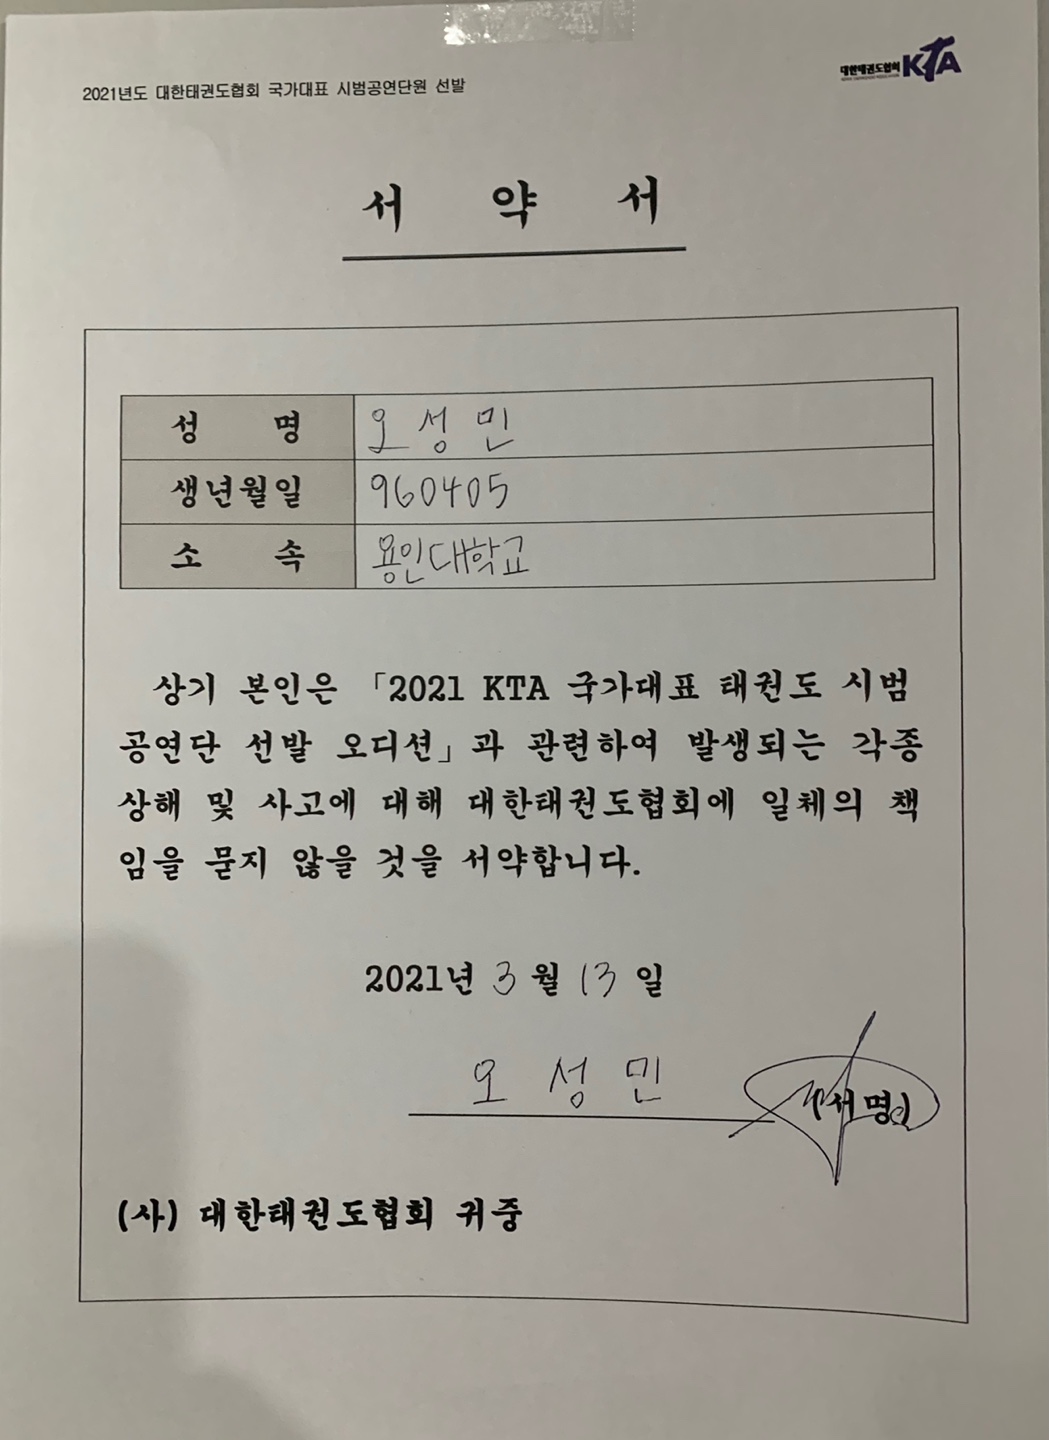 2021년도 대한태권도협회 국가대표 시범공연단원 선발
대한태권도협회 KTA
서 약 서
성 명 오성민
생년월일 960405
소 속 용인대학교
상기 본인은 「2021 KTA 국가대표 태권도 시범
공연단 선발 오디션」과 관련하여 발생되는 각종
상해 및 사고에 대해 대한태권도협회에 일체의 책
임을 묻지 않을 것을 서약합니다.
2021년 3 월 13 일
오 성 민 (서명)
(사) 대한태권도협회 귀중